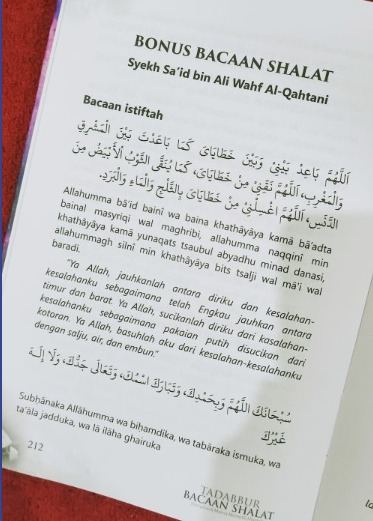 BONUS BACAAN SHALAT
Syekh Sa'id bin Ali Wahf Al-Qahtani
Bacaan istiftah
اَللَّهُمَّ بَاعِدْ بَيْنِيْ وَبَيْنَ خَطَايَايَ كَمَا بَاعَدْتَ بَيْنَ الْمَشْرِقِ
وَالْمَغْرِبِ، اَللَّهُمَّ نَقِّنِيْ مِنْ خَطَايَايَ، كَمَا يُنَقَّى الثَّوْبُ الْأَبْيَضُ مِنَ
الدَّنَسِ، اَللَّهُمَّ اغْسِلْنِيْ مِنْ خَطَايَايَ بِالثَّلْجِ وَالْمَاءِ وَالْبَرَدِ.
Allahumma bā'id bainī wa baina khathāyāya kamā bā'adta
bainal masyriqi wal maghribi, allahumma naqqinī min
khathāyāya kamā yunaqats tsaubul abyadhu minad danasi,
allahummagh silnī min khathāyāya bits tsalji wal mā'i wal
baradi.
"Ya Allah, jauhkanlah antara diriku dan kesalahan-
kesalahanku sebagaimana telah Engkau jauhkan antara
timur dan barat. Ya Allah, sucikanlah diriku dari kasalahan-
kesalahanku sebagaimana pakaian putih disucikan dari
kotoran. Ya Allah, basuhlah aku dari kesalahan-kesalahanku
dengan salju, air, dan embun."
سُبْحَانَكَ اللَّهُمَّ وَبِحَمْدِكَ، وَتَبَارَكَ اسْمُكَ، وَتَعَالَى جَدُّكَ، وَلَا إِلَهَ
غَيْرُكَ
Subḥānaka Allāhumma wa biḥamdika, wa tabāraka ismuka, wa
ta'āla jadduka, wa lā ilāha ghairuka
212
TADABBUR
BACAAN SHALAT